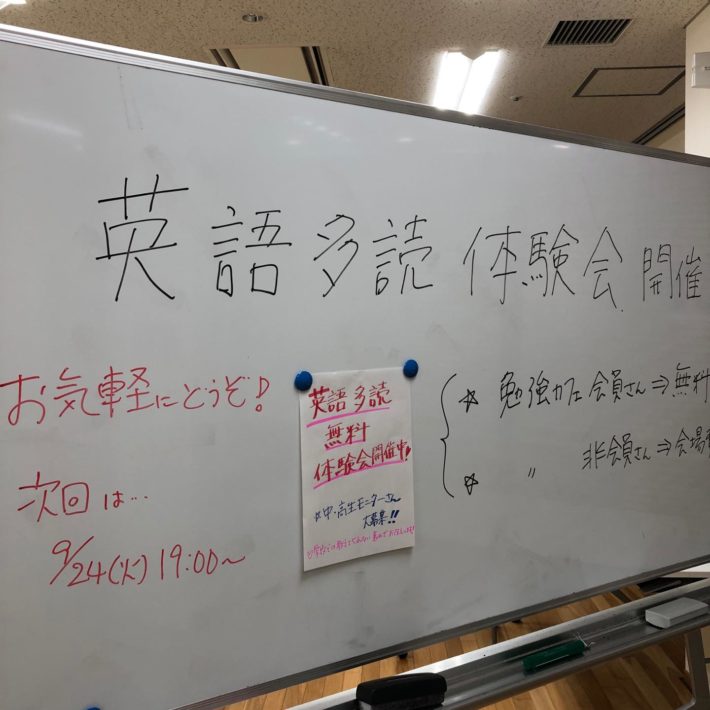 英語多読 体験会 開催
お気軽にどうぞ!
次回は…
9/24(火) 19:00〜
英語多読
無料
体験会開催中!
☆中・高生モニターさん
大募集!!
☆ 勉強カフェ 会員さん⇒無料
☆ 〃 非会員さん⇒会場